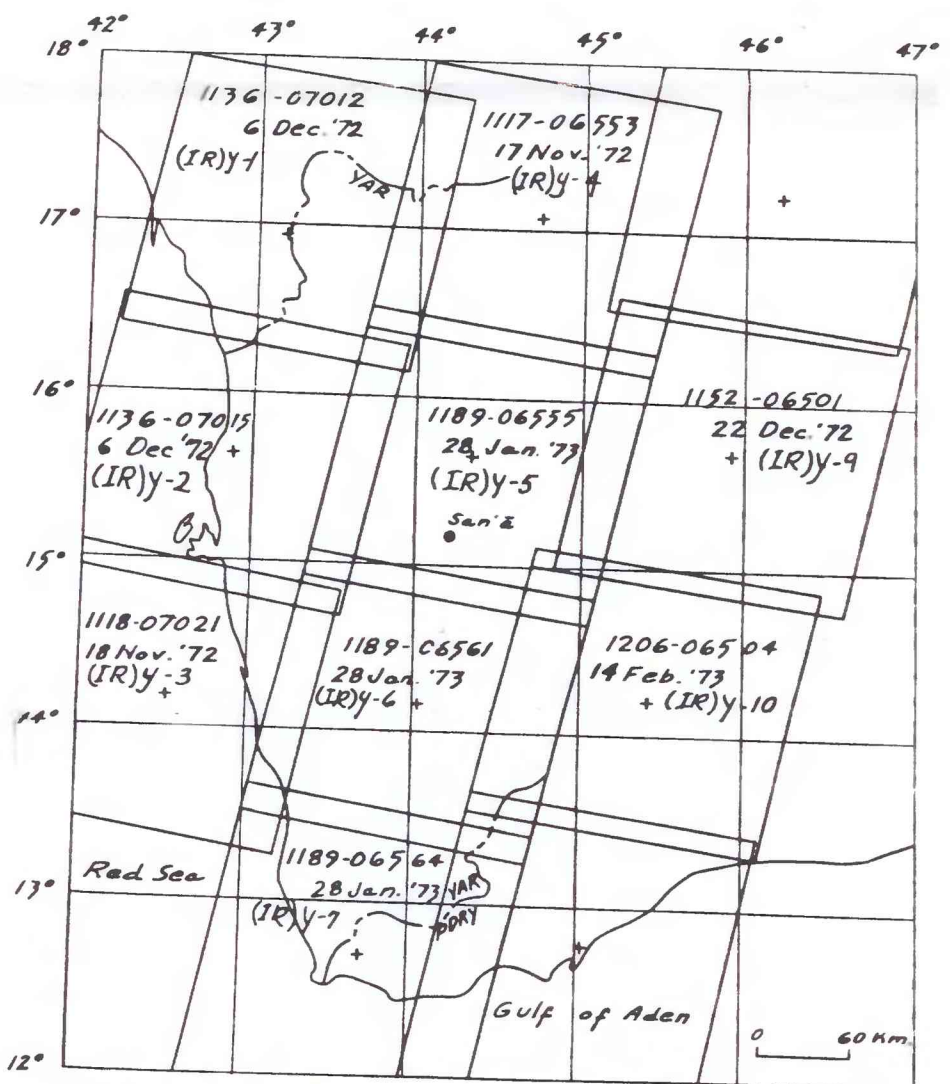 42° 43° 44° 45° 46° 47°
18°
1136-07012
6 Dec.'72
(IR)Y-1
1117-06553
17 Nov.'72
(IR)Y-4
YAR
17°
16°
1136-07015
6 Dec'72
(IR)Y-2
1189-06555
28 Jan.'73
(IR)Y-5
San'ā
1152-06501
22 Dec.'72
(IR)Y-9
15°
1118-07021
18 Nov.'72
(IR)Y-3
1189-06561
28 Jan.'73
(IR)Y-6
1206-06504
14 Feb.'73
(IR)Y-10
14°
Red Sea
13°
1189-06564
28 Jan.'73
(IR)Y-7
YAR
PDRY
Gulf of Aden
0 60 Km.
12°